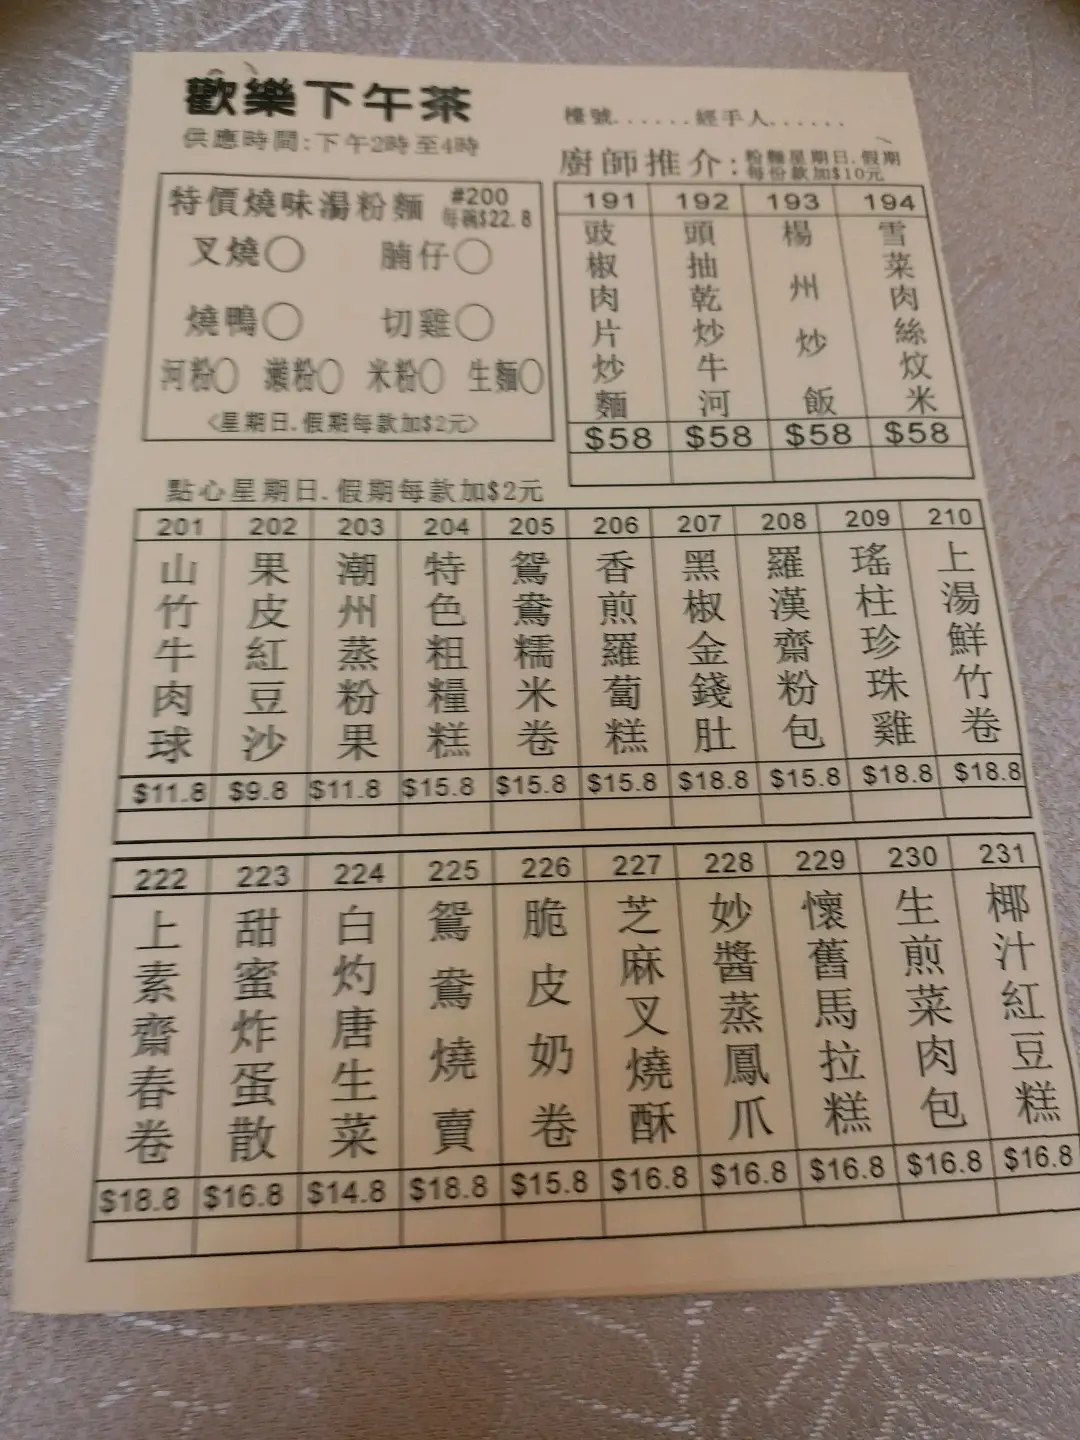 歡樂下午茶
供應時間:下午2時至4時
檯號......經手人......
特價燒味湯粉麵 #200 每碗$22.8
叉燒○ 腩仔○
燒鴨○ 切雞○
河粉○ 瀨粉○ 米粉○ 生麵○
<星期日.假期每款加$2元>
廚師推介:粉麵星期日.假期每份款加$10元
191 192 193 194
豉椒肉片炒麵
頭抽乾炒牛河
楊州炒飯
雪菜肉絲炆米
$58 $58 $58 $58
點心星期日.假期每款加$2元
201 202 203 204 205 206 207 208 209 210
山竹牛肉球
果皮紅豆沙
潮州蒸粉果
特色粗糧糕
鴛鴦糯米卷
香煎羅蔔糕
黑椒金錢肚
羅漢齋粉包
瑤柱珍珠雞
上湯鮮竹卷
$11.8 $9.8 $11.8 $15.8 $15.8 $15.8 $18.8 $15.8 $18.8 $18.8
222 223 224 225 226 227 228 229 230 231
上素齋春卷
甜蜜炸蛋散
白灼唐生菜
鴛鴦燒賣
脆皮奶卷
芝麻叉燒酥
妙醬蒸鳳爪
懷舊馬拉糕
生煎菜肉包
椰汁紅豆糕
$18.8 $16.8 $14.8 $18.8 $15.8 $16.8 $16.8 $16.8 $16.8 $16.8